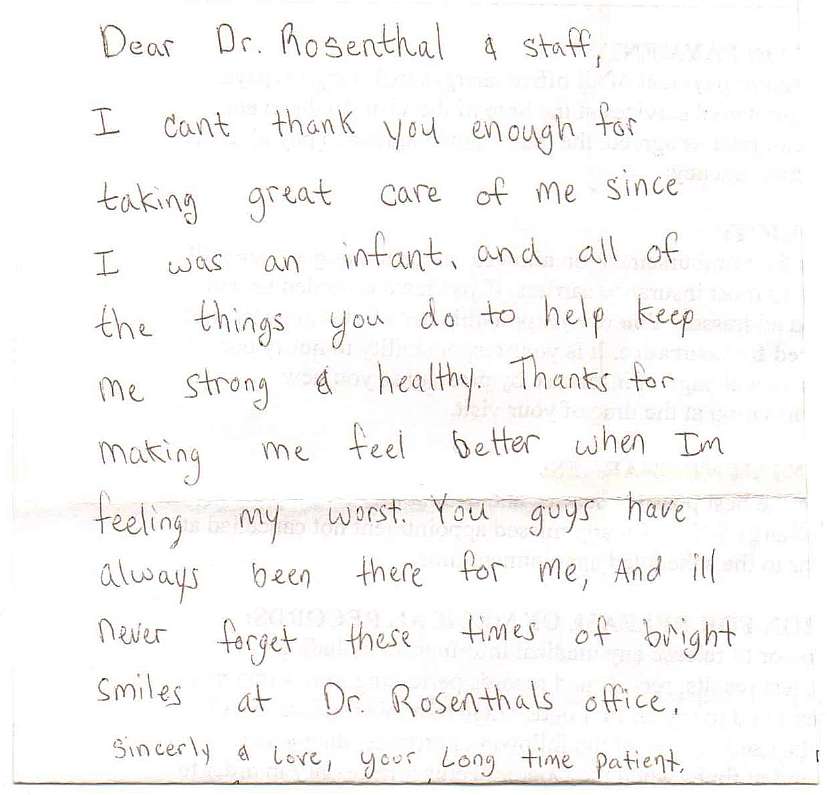 Dear Dr. Rosenthal & staff,
I cant thank you enough for
taking great care of me since
I was an infant, and all of
the things you do to help keep
me strong & healthy. Thanks for
making me feel better when Im
feeling my worst. You guys have
always been there for me, And ill
never forget these times of bright
smiles at Dr. Rosenthals office.
Sincerly & love, your Long time patient.